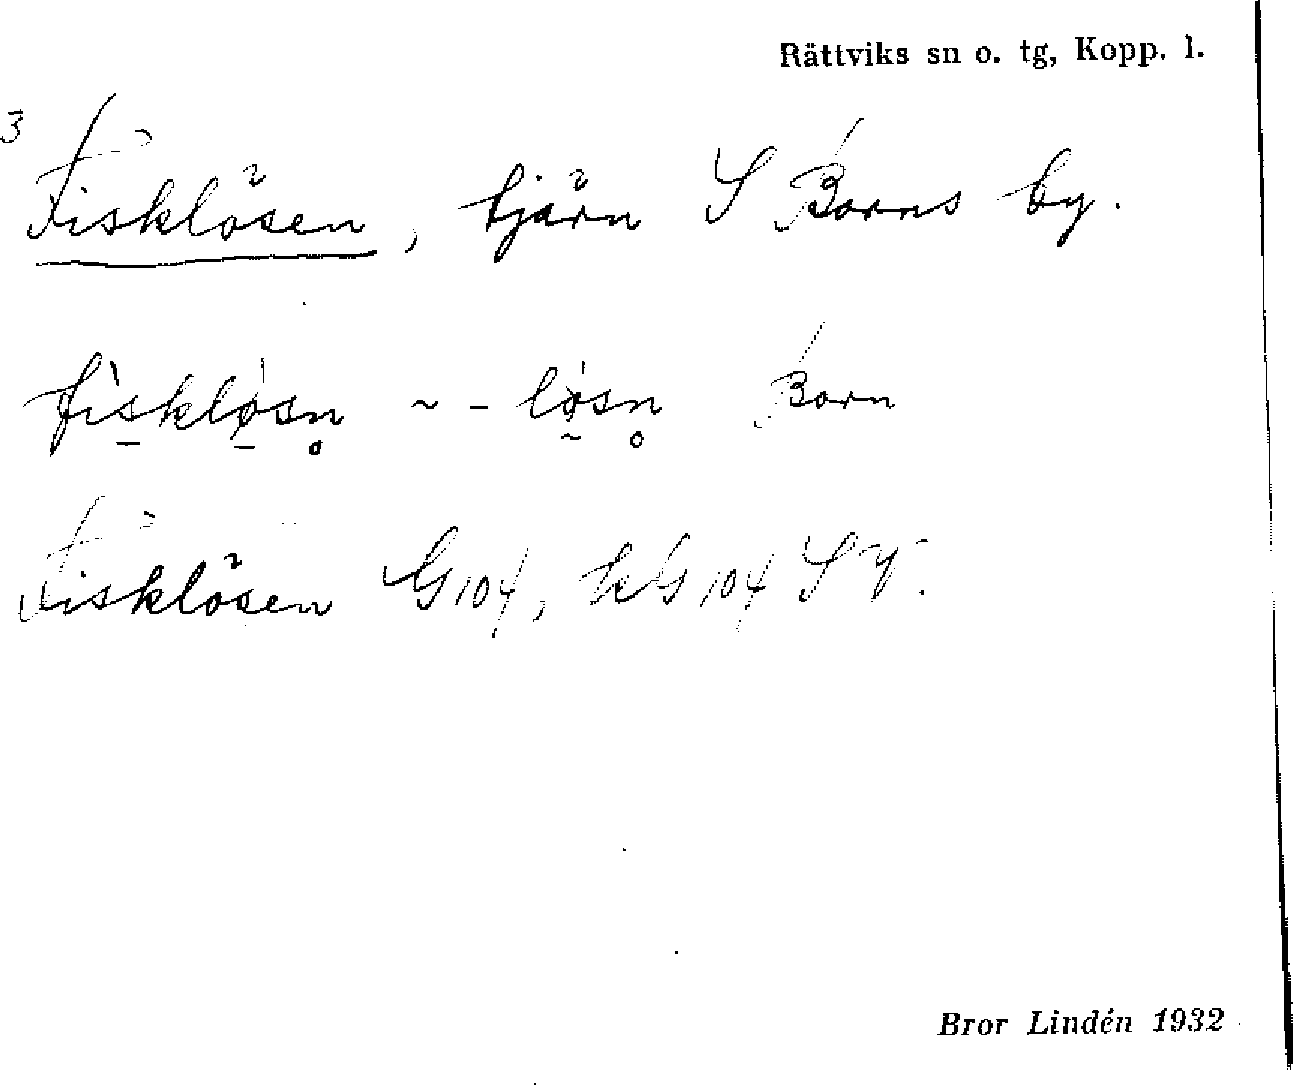 Rättviks sn o. tg, Kopp. l.
3
Fisklösen, tjärn S Borns by.
fìsklø̀sn̥ ~ - lø̀sn̥ Born
Fisklösen G104, kG104 SV.
Bror Lindén 1932